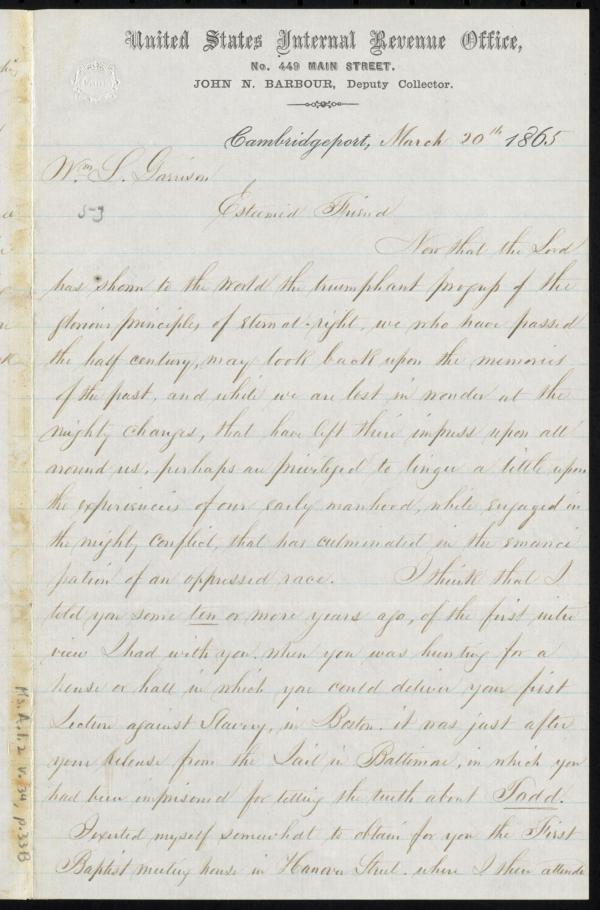 United States Internal Revenue Office,
No. 449 MAIN STREET.
JOHN N. BARBOUR, Deputy Collector.
Cambridgeport, March 20th 1865
Wm. L. Garrison
5-3
Esteemed Friend
Now that the Lord
has shown to the world the triumphant progress of the
glorious principles of eternal right, we who have passed
the half century, may look back upon the memories
of the past, and while we are lost in wonder at the
mighty changes, that have left their impress upon all
around us, perhaps are privileged to linger a little upon
the experiences of our early manhood, while engaged in
the mighty conflict, that has culminated in the emanci
pation of an oppressed race. I think that I
told you some ten or more years ago, of the first inter
view I had with you, when you was hunting for a
house or hall in which you could deliver your first
Lecture against Slavery, in Boston. it was just after
your release from the Jail in Baltimore, in which you
had been imprisoned for telling the truth about Todd.
I exerted myself somewhat to obtain for you the First
Baptist meeting house in Hanover Street. where I then attende
Ms. A.1.2 v.34, p.33B